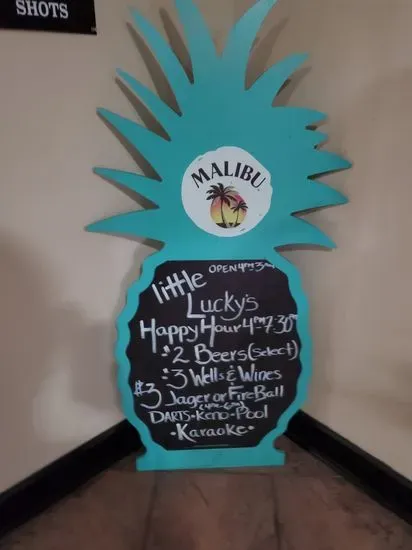 SHOTS
MALIBU
OPEN 4PM-3AM
little
Lucky's
Happy Hour 4PM-7:30PM
$2 Beers (Select)
$3 Wells & Wines
$3 Jager or FireBall
(4PM-6PM)
DARTS • Keno • Pool
• Karaoke •